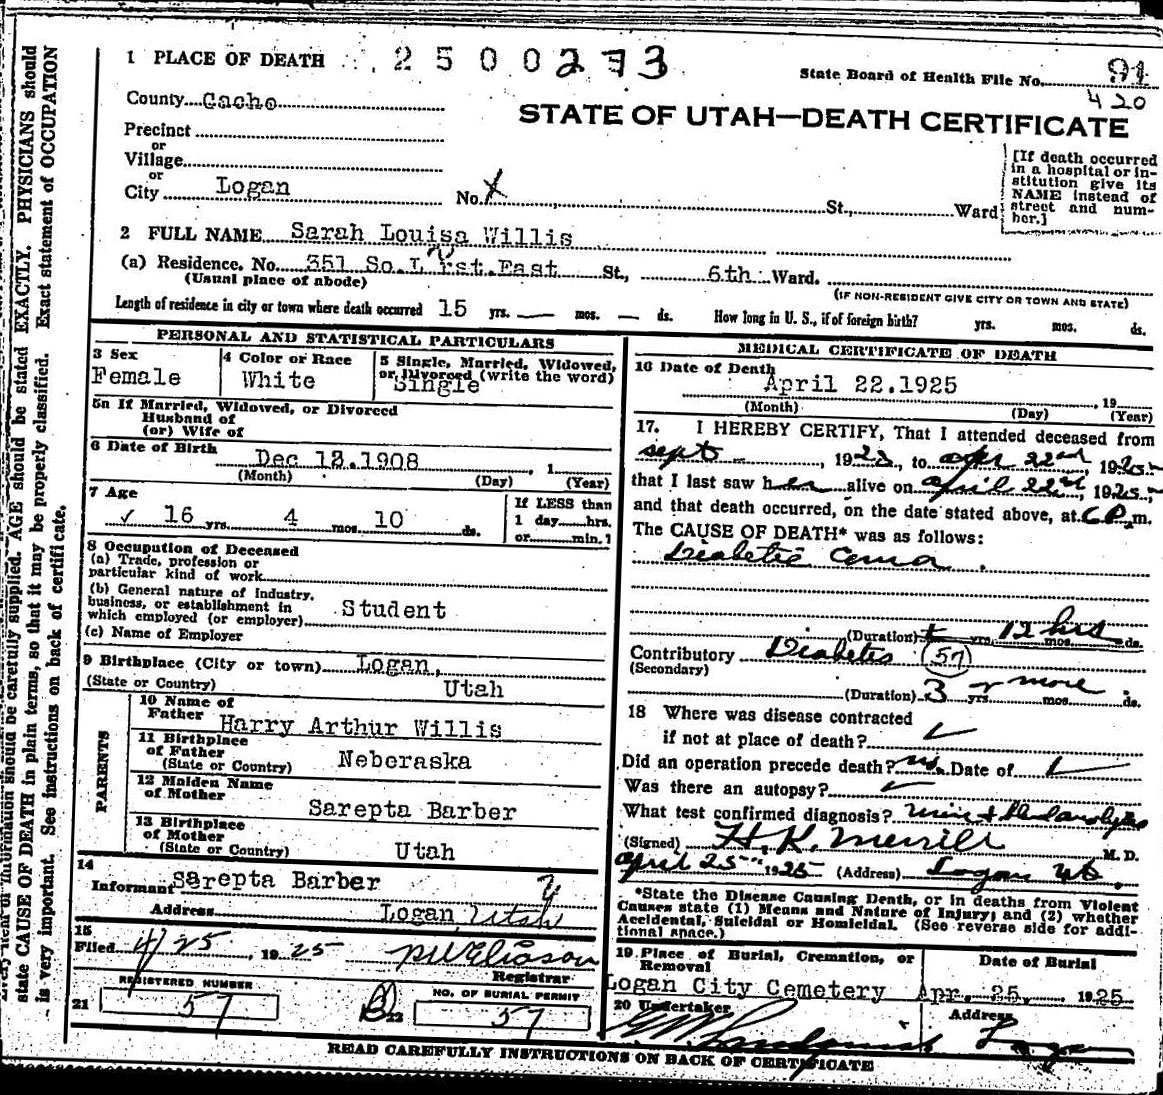 1 PLACE OF DEATH 2 5 0 0 2 7 3
State Board of Health File No. 91
420
County Cache
STATE OF UTAH—DEATH CERTIFICATE
Precinct
or
Village
or
City Logan No. X St., Ward
[If death occurred
in a hospital or in-
stitution give its
NAME instead of
street and num-
ber.]
2 FULL NAME Sarah Louisa Willis
(a) Residence. No. 351 So. 1st. East St., 6th Ward.
(Usual place of abode)
(IF NON-RESIDENT GIVE CITY OR TOWN AND STATE)
Length of residence in city or town where death occurred 15 yrs. — mos. — ds. How long in U. S., if of foreign birth? yrs. mos. ds.
PERSONAL AND STATISTICAL PARTICULARS
3 Sex
Female
4 Color or Race
White
5 Single, Married, Widowed,
or Divorced (write the word)
Single
5a If Married, Widowed, or Divorced
Husband of
(or) Wife of
6 Date of Birth Dec 12.1908, 1
(Month) (Day) (Year)
7 Age
✓ 16 yrs. 4 mos. 10 ds.
If LESS than
1 day hrs.
or min.?
8 Occupation of Deceased
(a) Trade, profession or
particular kind of work
(b) General nature of Industry,
business, or establishment in
which employed (or employer) Student
(c) Name of Employer
9 Birthplace (City or town) Logan,
(State or Country) Utah
PARENTS
10 Name of
Father Harry Arthur Willis
11 Birthplace
of Father
(State or Country) Neboraska
12 Maiden Name
of Mother
Sarepta Barber
13 Birthplace
of Mother
(State or Country) Utah
14
Informant Sarepta Barber
Address Logan, Utah
15
Filed 4/25, 1925
Registrar
REGISTERED NUMBER
21 57
NO. OF BURIAL PERMIT
22 57
MEDICAL CERTIFICATE OF DEATH
16 Date of Death
April 22.1925, 19
(Month) (Day) (Year)
17. I HEREBY CERTIFY, That I attended deceased from
sept, 1923, to apr 22nd, 1925
that I last saw her alive on april 22nd, 1925,
and that death occurred, on the date stated above, at 6 P.m.
The CAUSE OF DEATH* was as follows:
Diabetic Coma.
(Duration) yrs. 12 hrs mos. ds.
Contributory Diabetis (57)
(Secondary)
(Duration) 3 yrs. or more mos. ds.
18 Where was disease contracted
if not at place of death?
Did an operation precede death? no. Date of
Was there an autopsy?
What test confirmed diagnosis? Urine & blood analysis
(Signed) H. K. Merrill M. D.
april 25 1925 (Address) Logan Ut.
*State the Disease Causing Death, or in deaths from Violent
Causes state (1) Means and Nature of Injury; and (2) whether
Accidental, Suicidal or Homicidal. (See reverse side for addi-
tional space.)
19 Place of Burial, Cremation, or
Removal
Logan City Cemetery
Date of Burial
Apr. 25, 1925
20 Undertaker
Address
Logan
READ CAREFULLY INSTRUCTIONS ON BACK OF CERTIFICATE
information should be carefully supplied. AGE should be stated EXACTLY. PHYSICIANS should
state CAUSE OF DEATH in plain terms, so that it may be properly classified. Exact statement of OCCUPATION
is very important. See instructions on back of certificate.